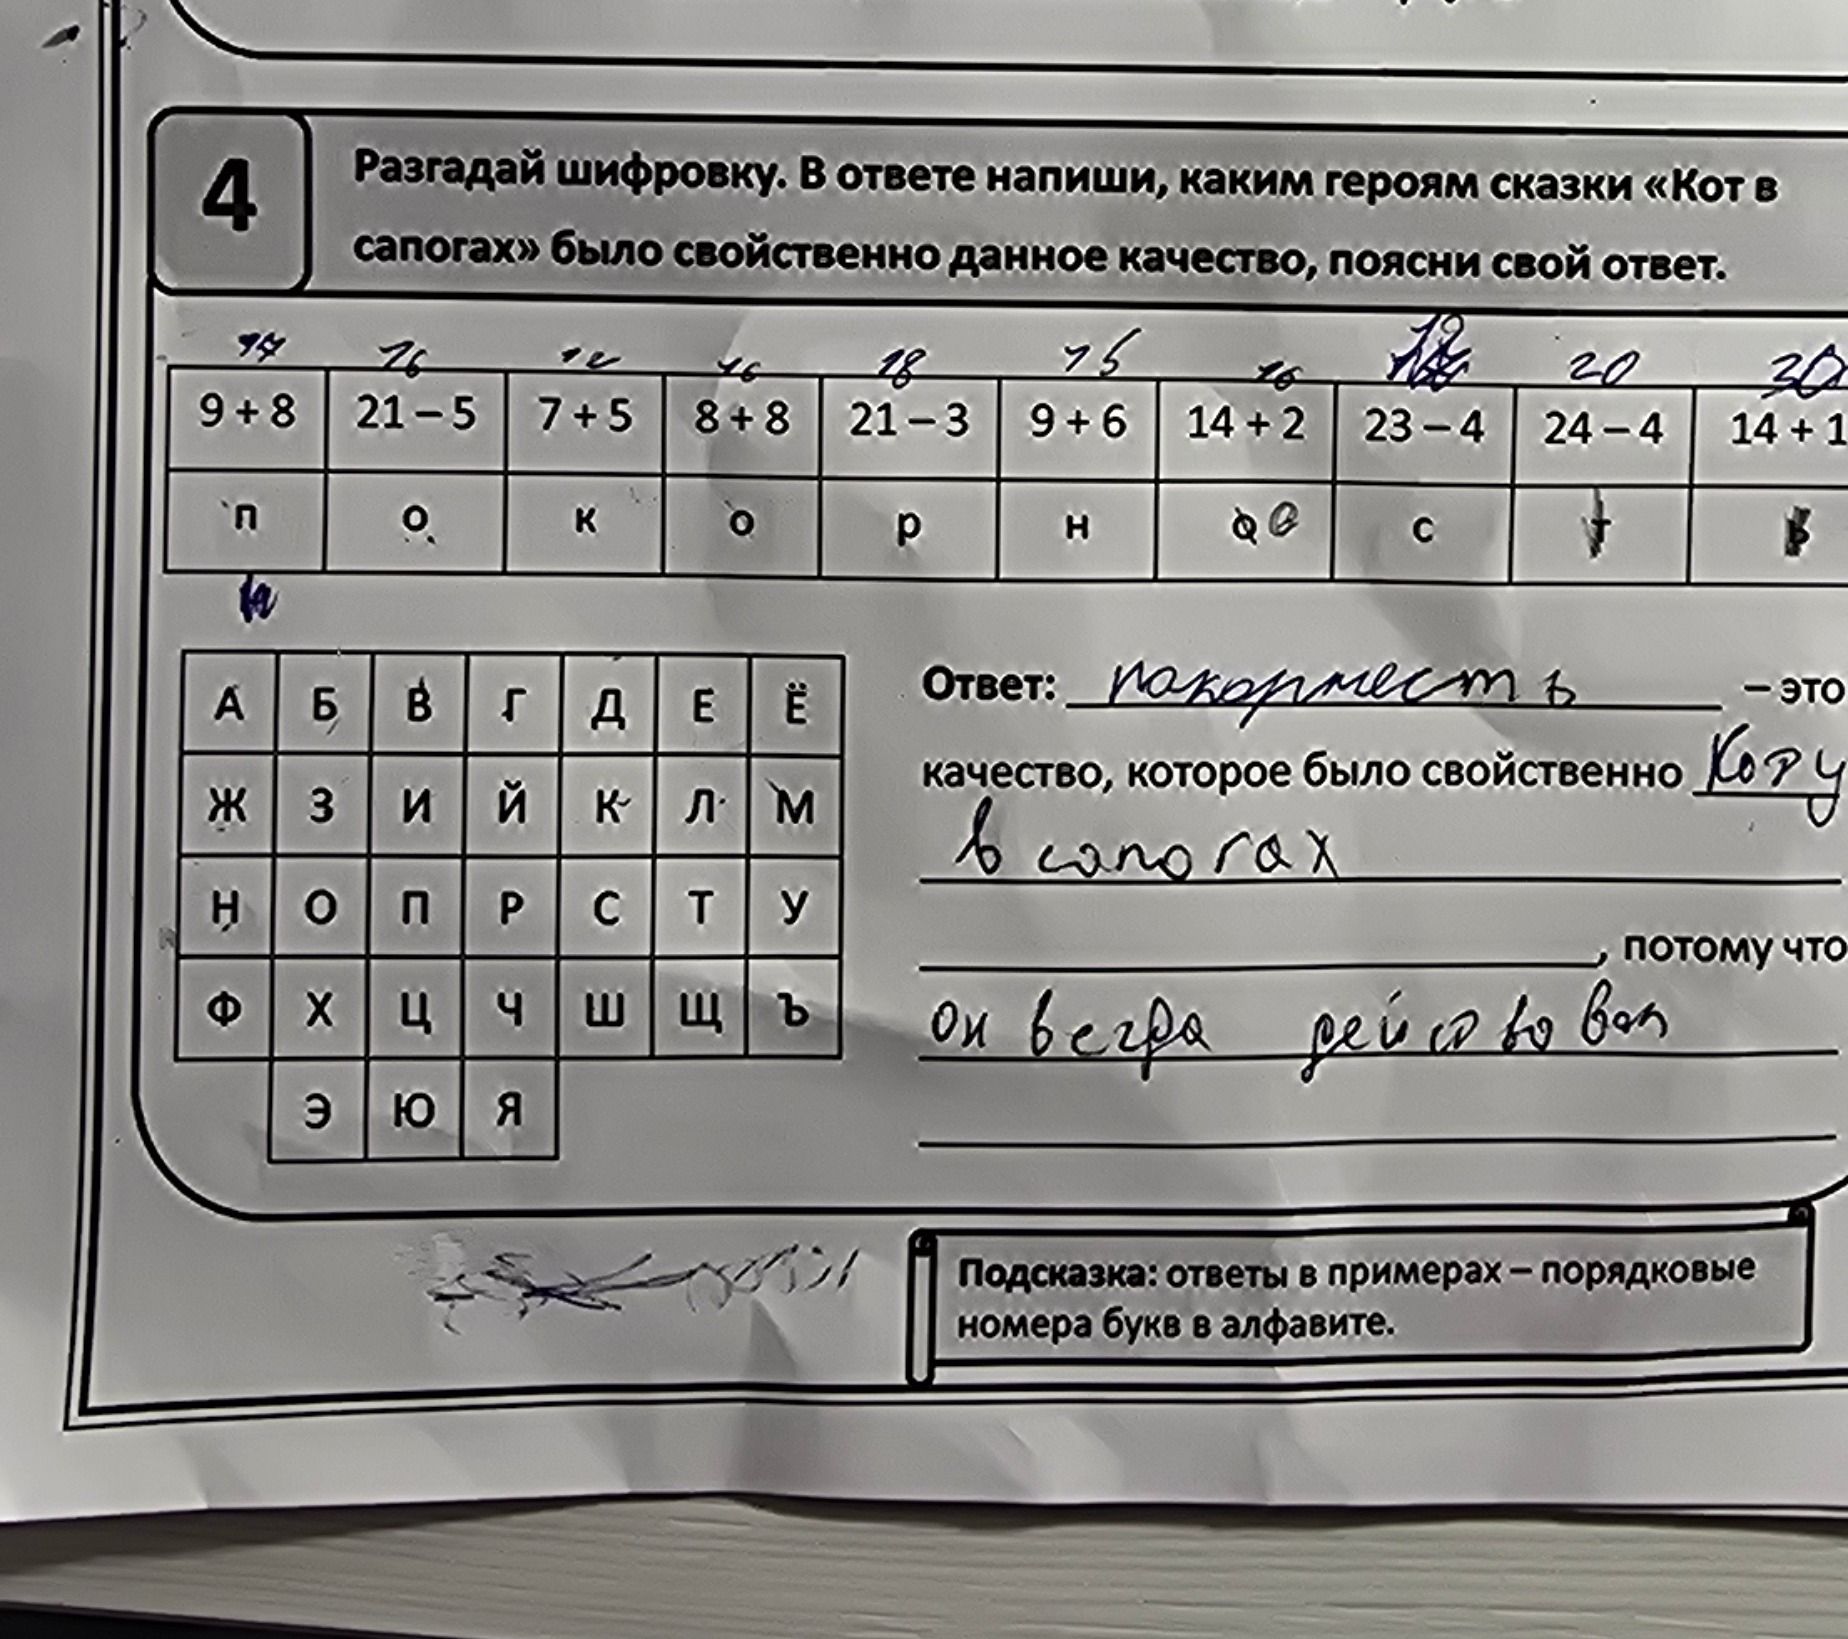 4
Разгадай шифровку. В ответе напиши, каким героям сказки «Кот в
сапогах» было свойственно данное качество, поясни свой ответ.
17 16 12 16 18 15 16 19 20 30
9 + 8 21 – 5 7 + 5 8 + 8 21 – 3 9 + 6 14 + 2 23 – 4 24 – 4 14 + 1
п о к о р н о с т ь
А Б В Г Д Е Ё
Ж З И Й К Л М
Н О П Р С Т У
Ф Х Ц Ч Ш Щ Ъ
Э Ю Я
Ответ: покорность – это
качество, которое было свойственно Коту
в сапогах
, потому что
он всегда действовал
Подсказка: ответы в примерах – порядковые
номера букв в алфавите.